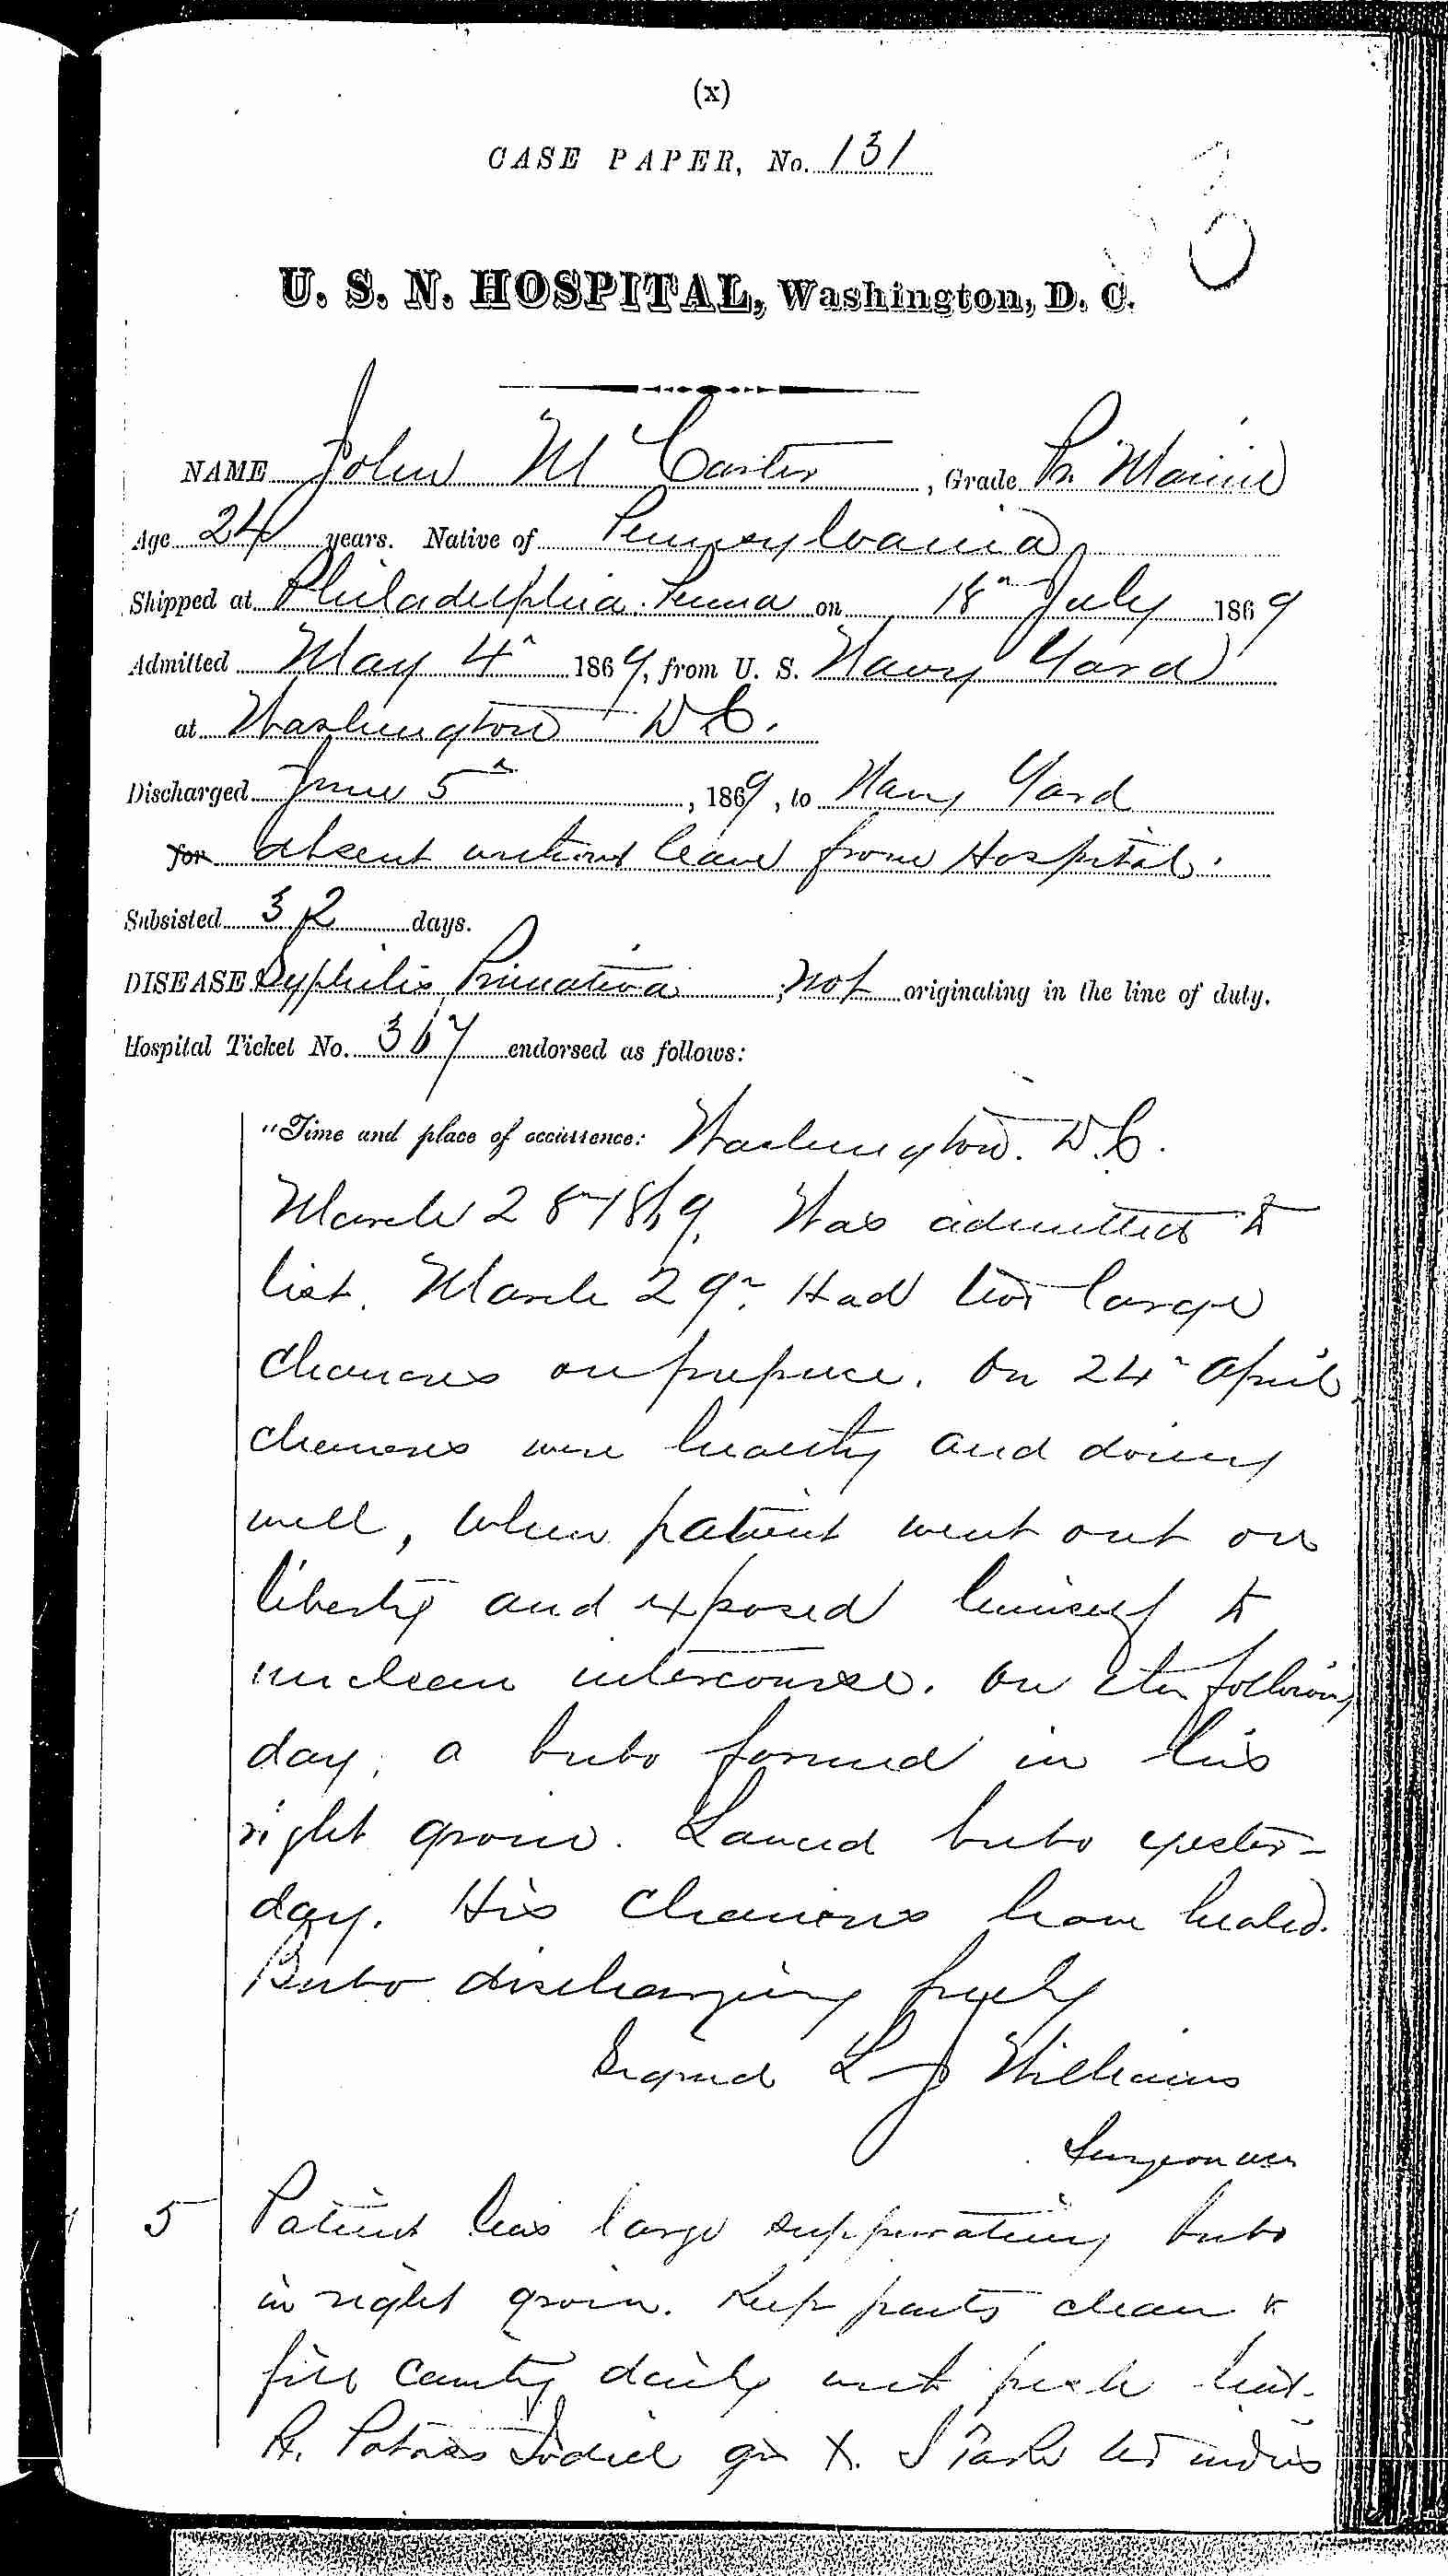 (x)
CASE PAPER, No. 131
U. S. N. HOSPITAL, Washington, D. C.
NAME John M Carter, Grade Pr. Marine
Age 24 years. Native of Pennsylvania
Shipped at Philadelphia. Penna on 18" July 1869
Admitted May 4" 1869, from U. S. Navy Yard
at Washington D.C.
Discharged June 5", 1869, to Navy Yard
for absent without leave from Hospital.
Subsisted 32 days.
DISEASE Syphilis, Primativa; not originating in the line of duty.
Hospital Ticket No. 367 endorsed as follows:
"Time and place of occurrence: Washington. D.C.
March 28" 1869. Was admitted to
list. March 29". Had two large
chancres on prepuce. On 24" April
chancres were healthy and doing
well, when patient went out on
liberty and exposed himself to
unclean intercourse. On the following
day, a bubo formed in his
right groin. Lanced bubo yester-
day. His chancres have healed.
Bubo discharging freely
Signed L J Williams
Surgeon USN
5 Patient has large suppurating bubo
in right groin. Keep parts clean &
fill cavity daily with fresh lint.
R. Potass Iodid grs X. S Take ter indies